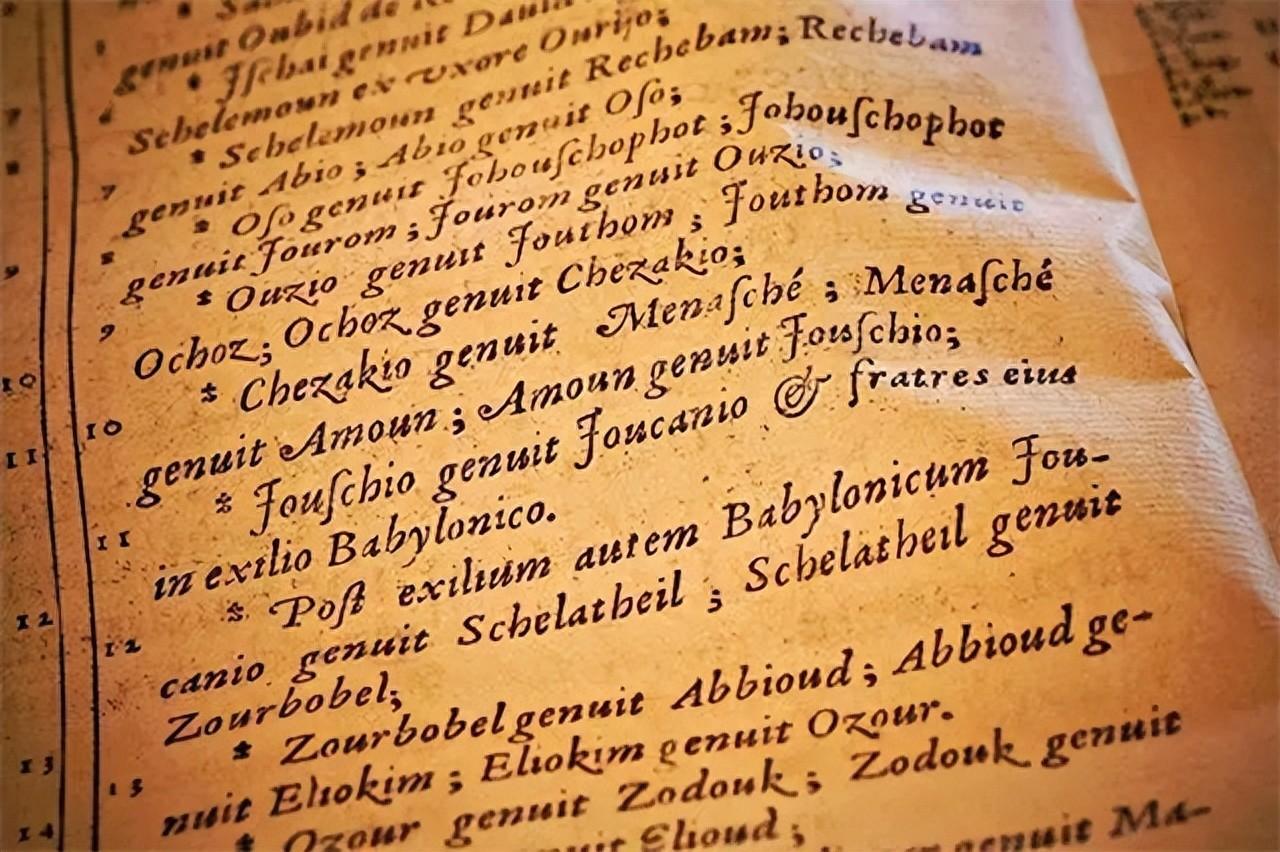 genuit Oubid de
6 * Jſchai genuit Dauid
Schelemoun ex vxore Ourijo;
7 * Schelemoun genuit Rechebam; Rechebam
genuit Abio; Abio genuit Oſo;
8 * Oſo genuit Johouſchophot; Johouſchophot
genuit Jourom; Jourom genuit Ouzio;
9 * Ouzio genuit Jouthom; Jouthom genuit
Ochoz; Ochoz genuit Chezakio;
10 10 * Chezakio genuit Menaſché; Menaſché
genuit Amoun; Amoun genuit Jouſchio;
11 11 * Jouſchio genuit Joucanio & fratres eius
in exilio Babylonico.
12 12 * Poſt exilium autem Babylonicum Jou-
canio genuit Schelatheil; Schelatheil genuit
Zourbobel;
13 13 * Zourbobel genuit Abbioud; Abbioud ge-
nuit Eliokim; Eliokim genuit Ozour.
14 * Ozour genuit Zodouk; Zodouk genuit
Elioud; genuit Ma-